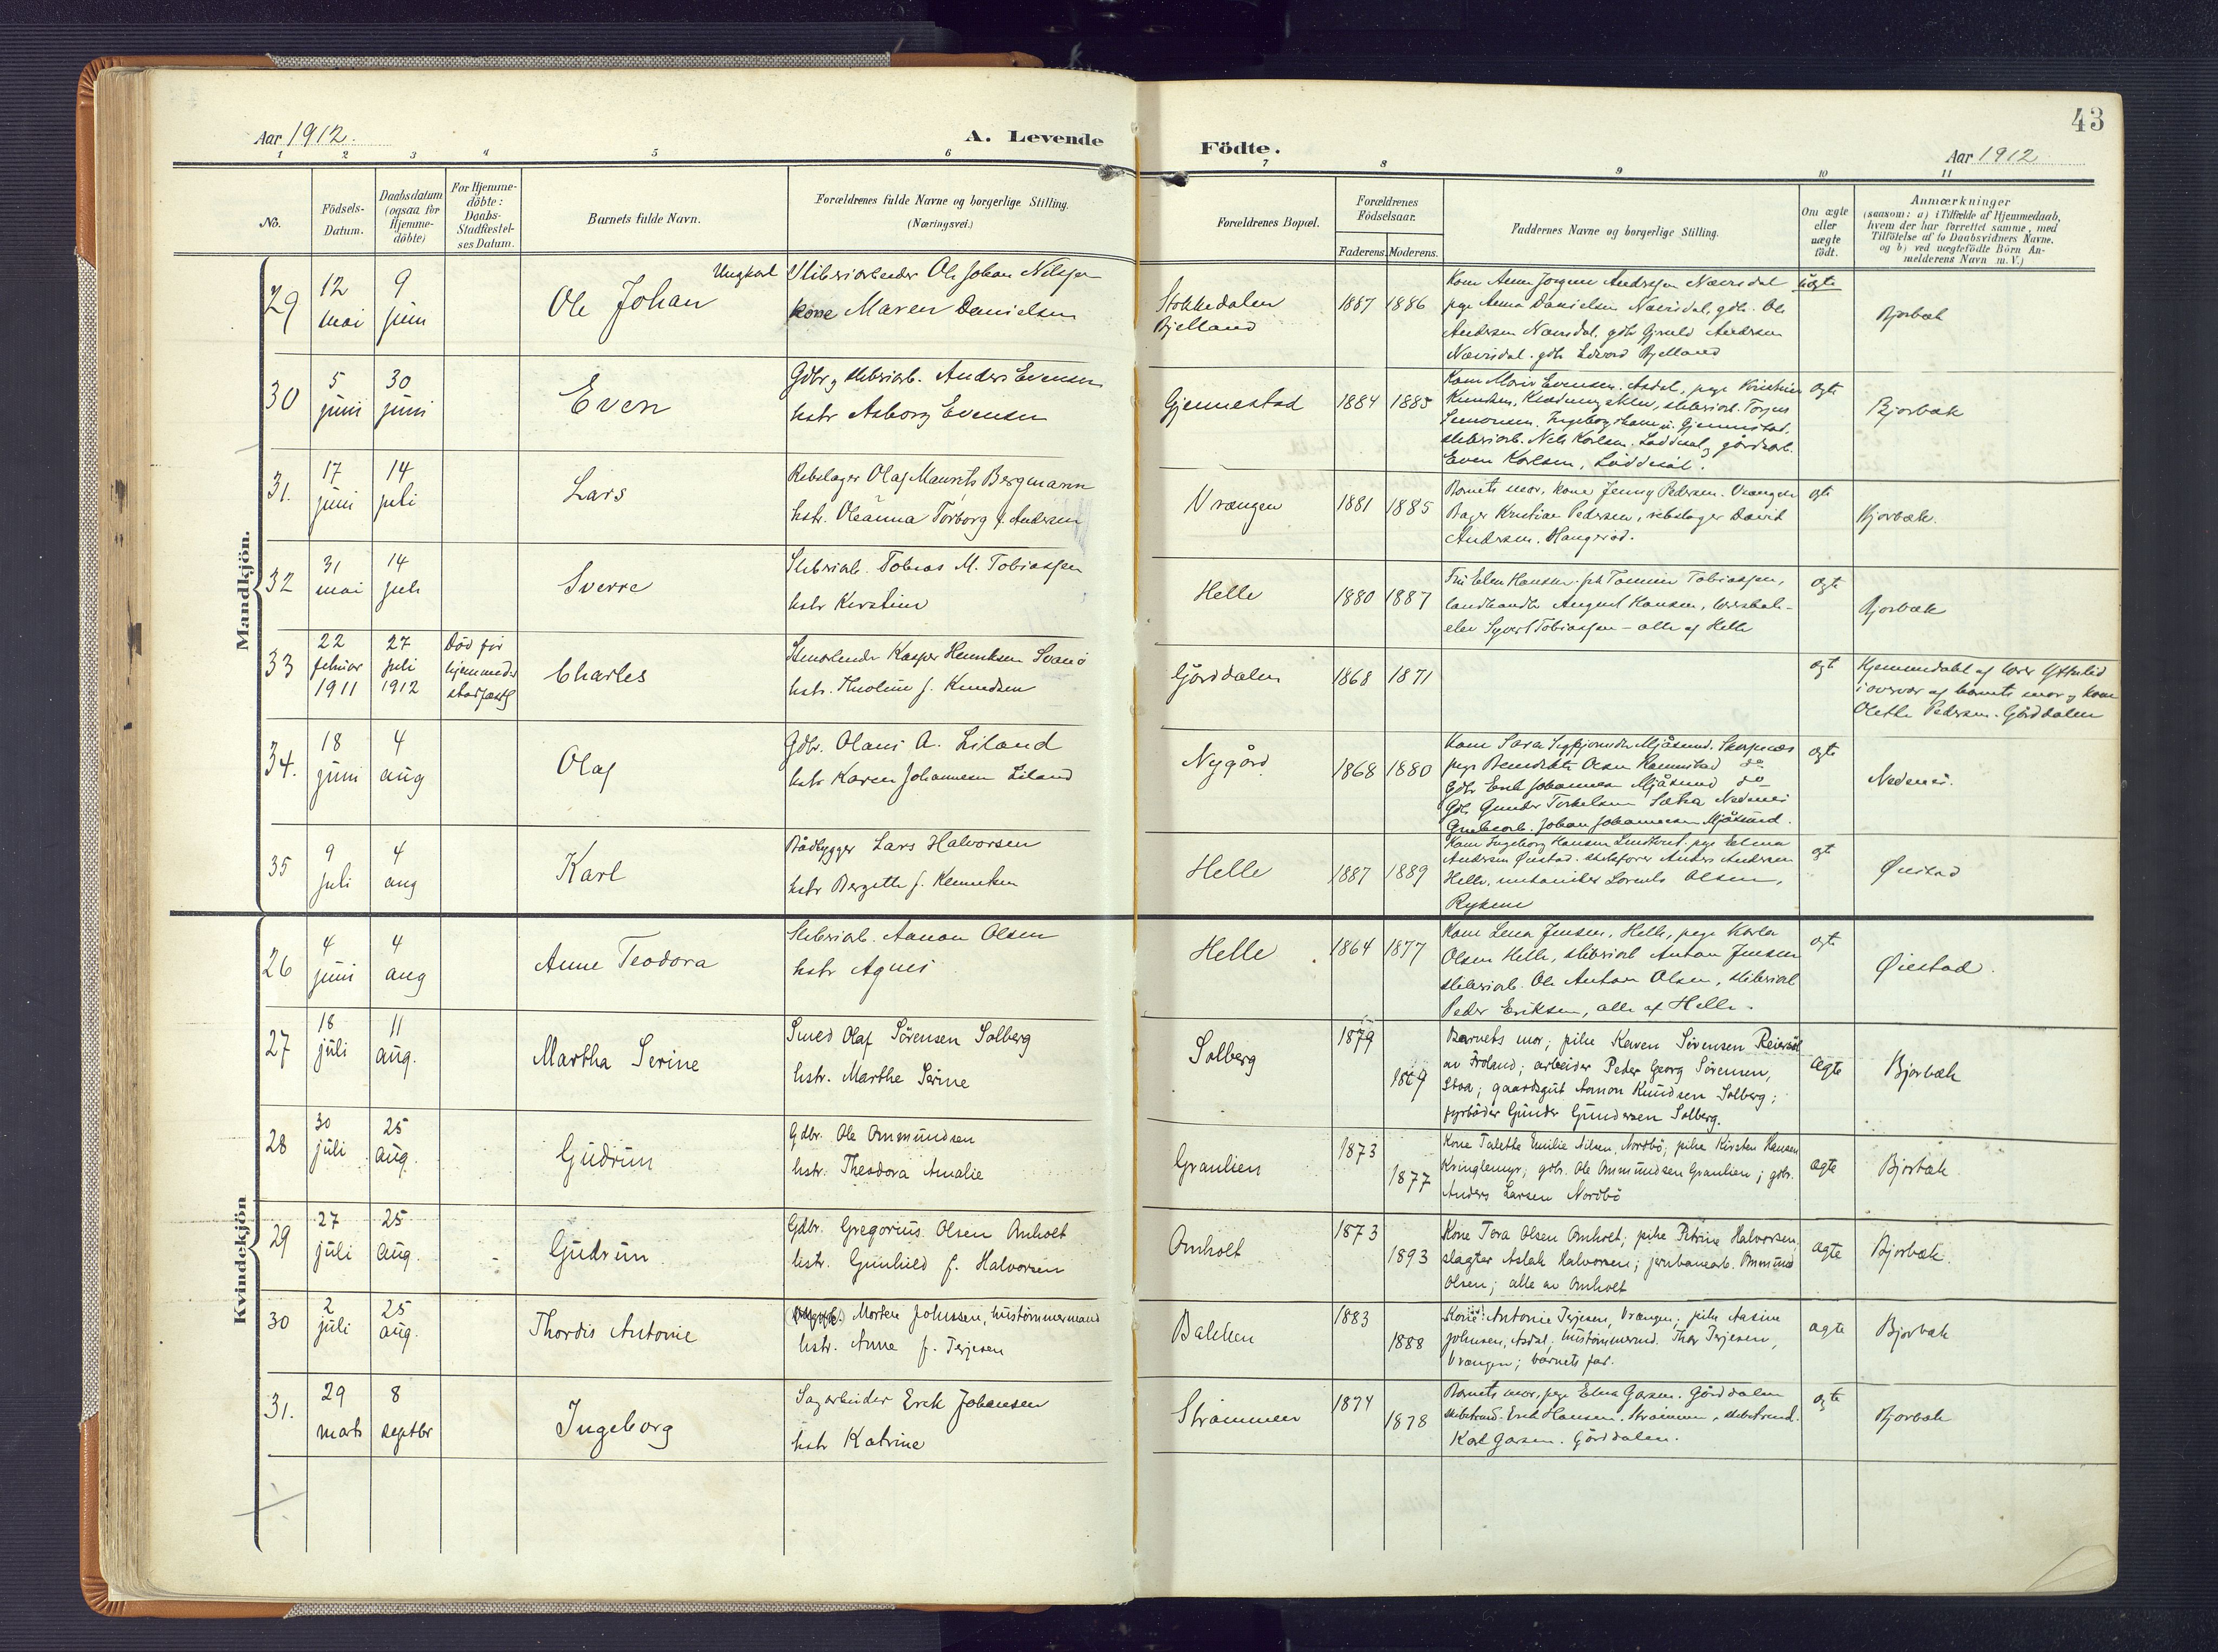 43
Aar 1912.
A. Levende
Födte.
Aar 1912
1 2 3 4 5 6 7 8 9 10 11
No.
Födsels-
Datum.
Daabsdatum
(ogsaa for
Hjemme-
döbte)
For Hjemme-
döbte:
Daabs-
Stadfæstel-
ses Datum.
Barnets fulde Navn.
Forældrenes fulde Navne og borgerlige Stilling.
(Næringsvei.)
Forældrenes Bopæl.
Forældrenes
Födselsaar.
Faderens.
Moderens.
Faddernes Navne og borgerlige Stilling.
Om ægte
eller
uægte
födt.
Anmærkninger
(saasom: a) i Tilfælde af Hjemmedaab,
hvem der har forrettet samme, med
Tilföielse af to Daabsvidners Navne.
og b) ved uægtefödte Börn An-
melderens Navn m. V.)
Mandkjön.
29
12
mai
9
juni
Ole Johan
Ungkarl Sliberiarbeider Ole Johan Nilsen
kone Maren Danielsen
Stokkedalen
Bjelland
1887
1886
Kone Anna Jorgine Andresen Nævisdal
pige Anna Danielsen Nævisdal, gdb. Ole
Andersen Nævisdal, gdb Andersen
Nævisdal. gdb Edvard Bjelland
uægte
Bjorbæk
30
5
juni
30
juni
Even
Gdbr og sliberiarb. Anders Evensen
hstr Aasborg Evensen
Gjennestad
1884
1885
Kone Marie Evensen. Asdal, pige Kristine
Knudsen, sliberiarb. Torjus
Simonsen. Gjennestad,
sliberiarb. Nils Karlsen. Løddesøl, gårdsarb.
Even Karlsen, Løddesøl.
ægte
Bjorbæk
31.
17
juni
14
juli
Lars
Rebslager Olaf Maurits Bergmann
hstr. Oleanna Torborg f. Andersen
Vrængen
1881
1885
Barnets mor, kone Jenny Pedersen. Vrængen
Bager Kristian Pedersen, rebslager David
Andersen. Haugerød.
ægte
Bjorbæk.
32
31
mai
14
juli
Sverre
Sliberiarb. Tobias M. Tobiassen
hstr Kirstine
Helle
1880
1887
Fru Elen Hansen. Tomine Tobiassen,
landhandler August Hansen,
elev Syvert Tobiassen – alle af Helle
ægte
Bjorbæk
33
22
februar
1911
27
juli
1912
Død før
hjemmedaab
stadfæstet
Charles
Stenarbeider Kasper Henriksen Svanø
hstr. Theoline f. Knudsen
Gårddalen
1868
1871
ægte
Hjemmedøbt af lærer
i overvær af barnets mor og kone
Olette Pedersen. Gårddalen
34.
18
juni
4
aug
Olaf
Gdbr. Olaus A. Liland
hstr Karen Johannesen Liland
Nygård
1868
1880
Kone Sara Mjåsund. Skarpnæs
pige Benedikte Olsen do
Gdbr Erik Johannesen Mjåsund do
Gdb. Gunder Torkelsen Nedenes
Grubearb. Johan Johannesen Mjåsund.
ægte
Nedenes.
35
9
juli
4
aug
Karl
Bådbygger Lars Halvorsen
hstr Bergitte f. Henriksen
Helle
1887
1889
Kone Ingeborg Hansen pige Elma
Andersen Øiestad. skibsfører Anders Andersen
Helle, Lorents Olsen,
Rykene
ægte
Øiestad
Kvindekjön
26
4
juni
4
aug
Anne Teodora
Sliberiarb. Aanon Olsen
hstr Agnes
Helle
1864
1877
Kone Lena Jensen, Helle, pige Karla
Olsen Helle, sliberiarb Anton Jensen
sliberiarb. Ole Anton Olsen, sliberiarb
Peder Eriksen, alle af Helle.
ægte
Øiestad.
27
18
juli
11
aug.
Martha Serine
Smed Olaf Sörensen Solberg
hstr. Marthe Serine
Solberg
1879
1869
Barnets mor; pike Karen Sörensen Reiersöl
av Froland; arbeider Peder Georg Sörensen,
Stoa; gaardsgut Aanon Knudsen Solberg;
fyrböder Gunder Gundersen Solberg.
ægte
Bjorbæk
28
30
juli
25
aug.
Gudrun
Gdbr. Ole Ommundsen
hstr. Theodora Amalie
Granlien
1873
1877
Kone Talette Emilie Nilsen, Nordbö; pike Kirsten Hansen
Kringlemyr; gdbr. Ole Ommundsen Granlien; gdbr.
Anders Larsen Nordbö
ægte
Bjorbæk
29
27
juli
25
aug.
Gudrun
Gdbr. Gregorius Olsen Omholt
hstr. Gunhild f. Halvorsen
Omholt
1873
1893
Kone Tora Olsen Omholt; pike Petrine Halvorsen,
slagter Aslak Halvorsen; jernbanearb. Ommund
Olsen; alle av Omholt
ægte
Bjorbæk.
30
2
juli
25
aug.
Thordis Antonie
Morten Johnsen, hustömmermand
hstr. Anne f. Terjesen
Bakken
1883
1888
Kone Antonie Terjesen, Vrængen; pike Aasine
Johnsen, Asdal; hustömmermd. Thor Terjesen,
Vrængen; barnets far.
ægte
Bjorbæk
31.
29
marts
8
septbr
Ingeborg
Sagarbeider Erik Johansen
hstr Katrine
Strømmen
1874
1878
Barnets mor, pige Elna Gårddalen
skibstmd. Erik Hansen. Strømmen, skibstmd.
Karl Gårddalen.
ægte
Bjorbæk